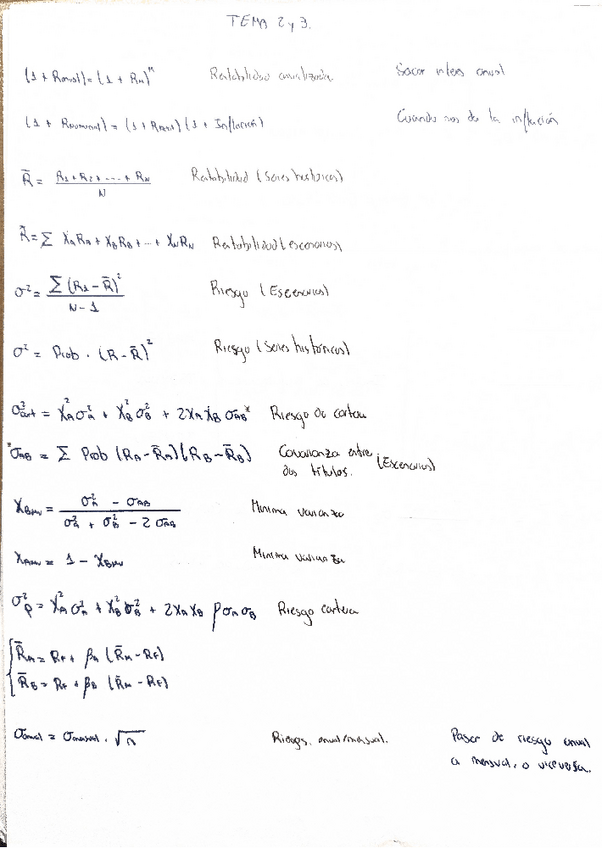 TEMA 2 y 3.
(1 + Ranual) = (1 + Rn)^n Rentabilidad anualizada Sacar interes anual
(1 + Rnominal) = (1 + Rreal) (1 + Inflación) Cuando nos da la inflación
R̄ = (R1 + R2 + ... + RN) / N Rentabilidad (Series históricas)
R̄ = Σ XARA + XBRB + ... + XNRN Rentabilidad (escenarios)
σ² = Σ (R1 - R̄)² / (N - 1) Riesgo (Escenarios)
σ² = Prob · (R - R̄)² Riesgo (Series históricas)
σ²cart = X²A σ²A + X²B σ²B + 2XA XB σAB* Riesgo de cartera
*σAB = Σ Prob (RA - R̄A) (RB - R̄B) Covarianza entre
dos títulos. (Escenarios)
XBMV = (σ²A - σAB) / (σ²A + σ²B - 2 σAB) Minima varianza
XAMV = 1 - XBMV Minima varianza
σ²p = X²A σ²A + X²B σ²B + 2XA XB ρσA σB Riesgo cartera
R̄A = RF + βA (R̄M - RF)
R̄B = RF + βB (R̄M - RF)
σanual = σmensual · √n Riesgo. anual/mensual. Pasar de riesgo anual
a mensual, o viceversa.